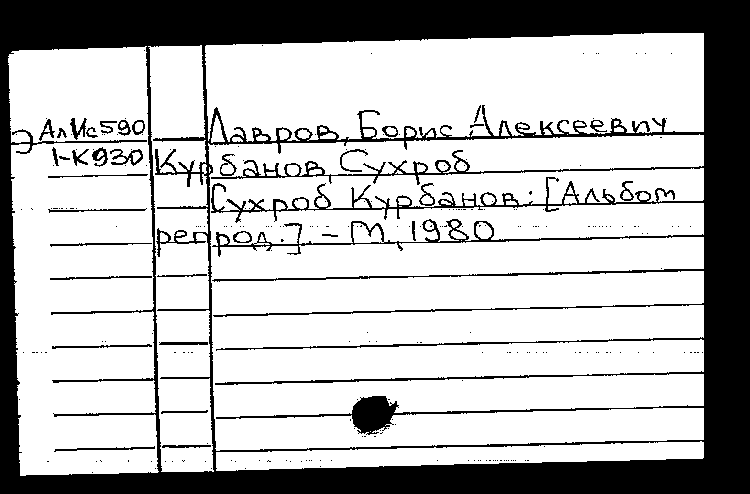 Э АлИс590 Лавров, Борис Алексеевич
1-К930 Курбанов, Сухроб
Сухроб Курбанов: [Альбом
репрод.]. - М., 1980